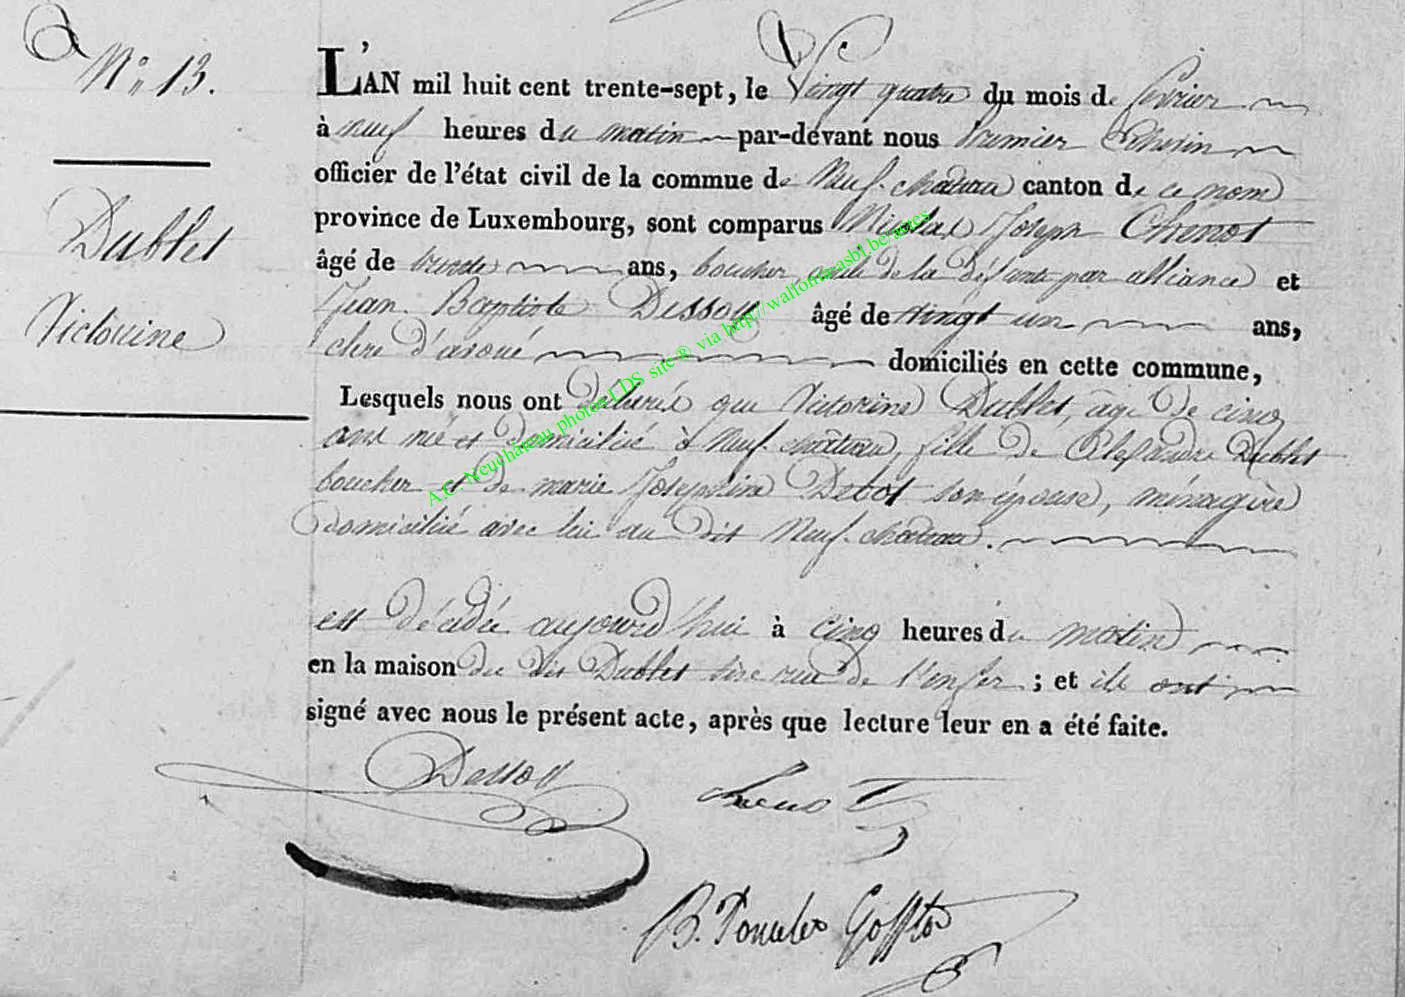 N° 13.
Dublet
Victorine
L'AN mil huit cent trente-sept, le Vingt quatre du mois de fevrier
à neuf heures du matin par-devant nous Premier Echevin
officier de l'état civil de la commue de Neuf-chateau canton de ce nom
province de Luxembourg, sont comparus Nicolas Joseph Chenot
âgé de trente ans, boucher, de la défunte par alliance et
Jean Baptiste Dessoy âgé de vingt un ans,
clerc d'avoué domiciliés en cette commune,
Lesquels nous ont déclaré que Victorine Dublet, agé de cinq
ans née et domicilié à Neuf-chateau, fille de Alexandre Dublet
boucher et de marie Josephine Debot son épouse, ménagère
domicilié avec lui au dit Neuf-chateau.
est décédée aujourd'hui à cinq heures du matin
en la maison du dit Dublet sise rue de l'enfer ; et ils ont
signé avec nous le présent acte, après que lecture leur en a été faite.
Dessoy
Chenot
A.C. Neufchâteau photos LDS site ® via http://wallonia-asbl.be/actes